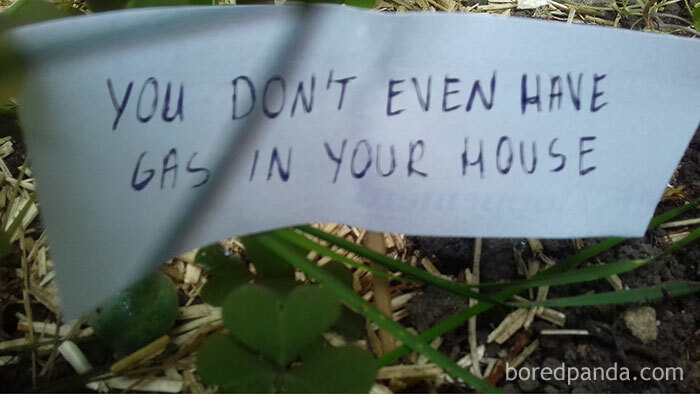 YOU DON'T EVEN HAVE
GAS IN YOUR HOUSE
boredpanda.com